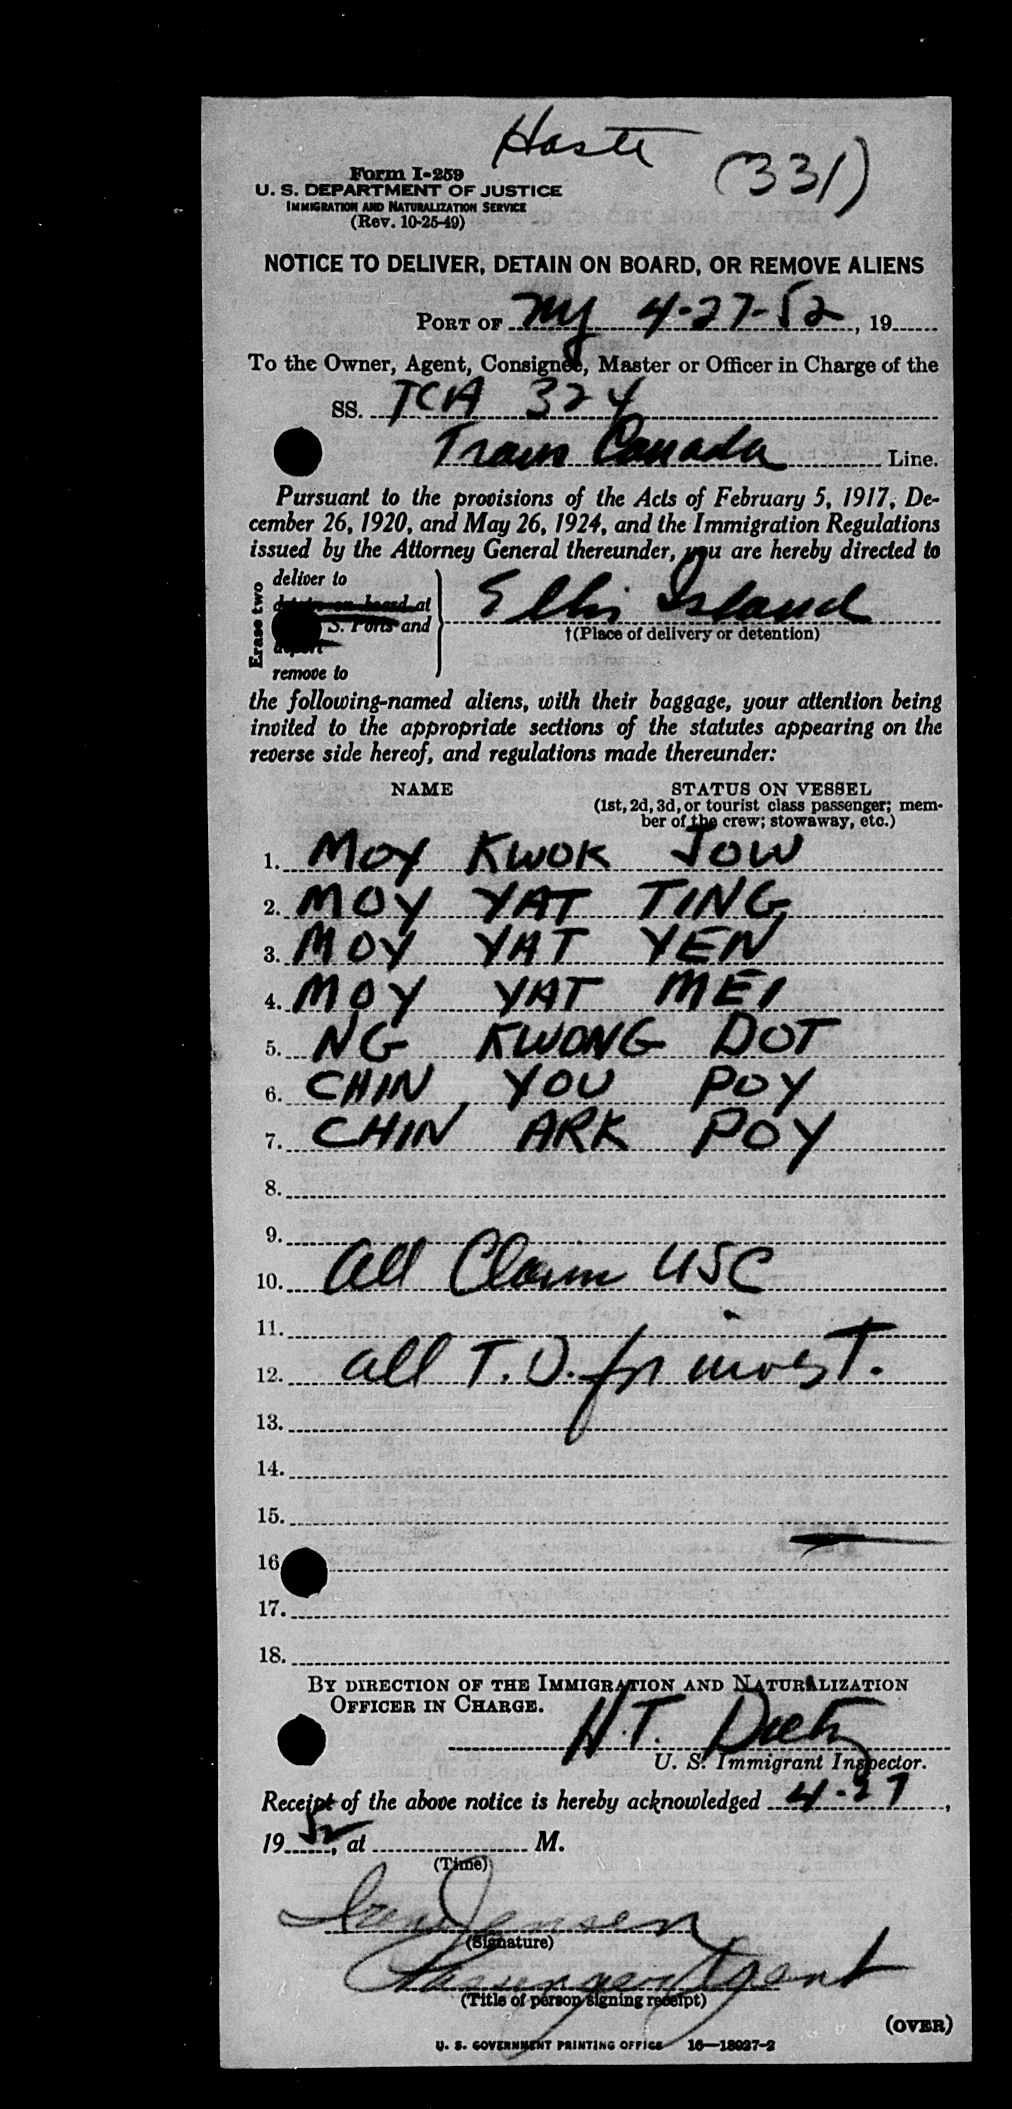 Haste
(331)
Form I-259
U. S. DEPARTMENT OF JUSTICE
IMMIGRATION AND NATURALIZATION SERVICE
(Rev. 10-25-49)
NOTICE TO DELIVER, DETAIN ON BOARD, OR REMOVE ALIENS
PORT OF NY 4-27-52, 19
To the Owner, Agent, Consignee, Master or Officer in Charge of the
SS. TCA 324
Trans Canada Line.
Pursuant to the provisions of the Acts of February 5, 1917, De-
cember 26, 1920, and May 26, 1924, and the Immigration Regulations
issued by the Attorney General thereunder, you are hereby directed to
Erase two
deliver to
detain on board at
S. Ports and
deport
remove to
Ellis Island
†(Place of delivery or detention)
the following-named aliens, with their baggage, your attention being
invited to the appropriate sections of the statutes appearing on the
reverse side hereof, and regulations made thereunder:
NAME STATUS ON VESSEL
(1st, 2d, 3d, or tourist class passenger; mem-
ber of the crew; stowaway, etc.)
1. MOY KWOK JOW
2. MOY YAT TING
3. MOY YAT YEN
4. MOY YAT MEI
5. NG KWONG DOT
6. CHIN YOU POY
7. CHIN ARK POY
8.
9.
10. All Claim USC
11.
12. all T.D. for invest.
13.
14.
15.
16
17.
18.
BY DIRECTION OF THE IMMIGRATION AND NATURALIZATION
OFFICER IN CHARGE.
H.T.
U. S. Immigrant Inspector.
Receipt of the above notice is hereby acknowledged 4-27,
19 52, at M.
(Time)
Jensen
(Signature)
Passenger Agent
(Title of person signing receipt)
(OVER)
U. S. GOVERNMENT PRINTING OFFICE 16—18027-2